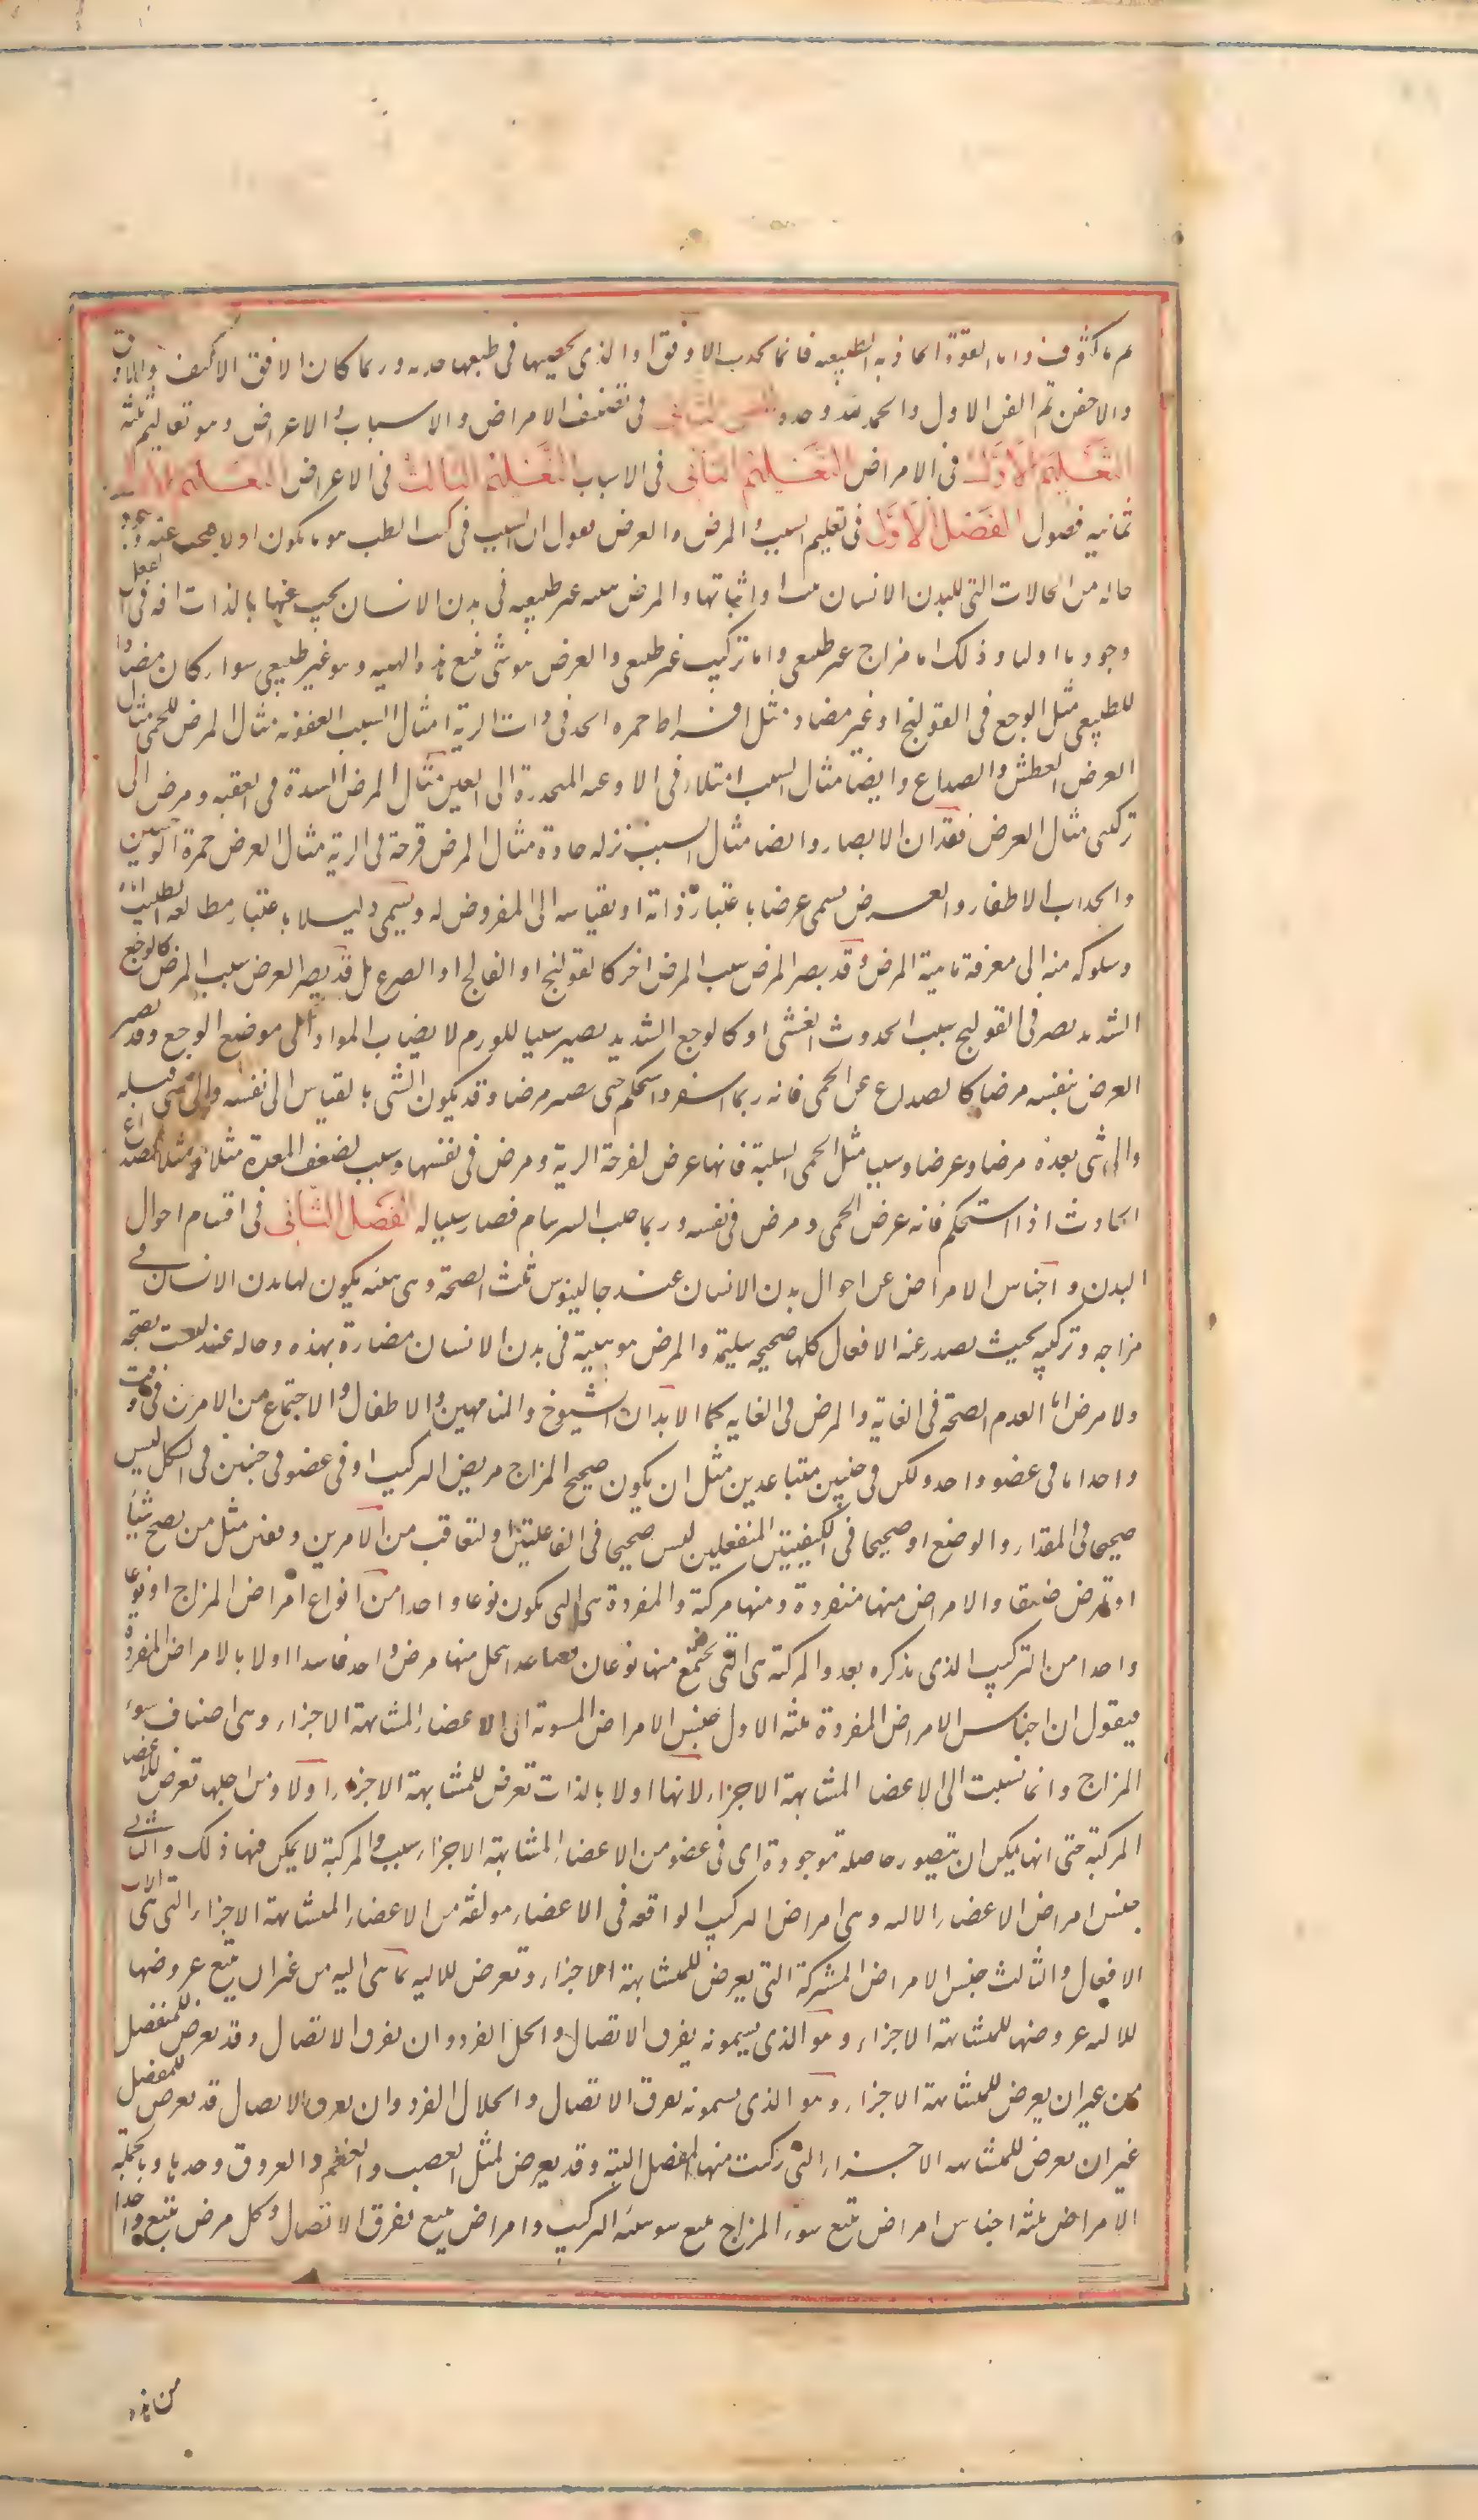 واما القوة الجاذبة الطبيعيه فانما تجذب الاوفق او الذى يخصها فى طبعها جذبه وربما كان الاوفق الاكثف
والاخفن تم الفن الاول والحمد لله وحده الفن الثانى فى تصنيف الامراض والاسباب والاعراض وهو تعاليم ثلثة
التعليم الاول فى الامراض التعليم الثانى فى الاسباب التعليم الثالث فى الاعراض التعليم الاول
ثمانيه فصول الفصل الاول فى تعليم السبب والمرض والعرض نقول ان السبب فى كتب الطب هو ما يكون اولا فيجب عنه وجود
حاله من الحالات التى للبدن الانسان او اثباتها والمرض هيئه غير طبيعيه فى بدن الانسان يجب عنها بالذات افه فى الفعل
وجوبا اوليا وذلك اما مزاج غير طبيعى واما تركيب غير طبيعى والعرض هو شى يتبع هذه الهيئه وهو غير طبيعى سواء كان مضادا
للطبيعى مثل الوجع فى القولنج او غير مضاد مثل افراط حمره الخد فى ذات الرية مثال السبب العفونه مثال المرض الحمى مثال
العرض العطش والصداع وايضا مثال السبب امتلاء فى الاوعيه المنحدرة الى العين مثال المرض السدة فى العنبيه ومرض الى
تركيبى مثال العرض فقدان الابصار وايضا مثال السبب نزله حادة مثال المرض قرحة فى الرية مثال العرض حمرة الوجنتين
وانجذاب الاظفار والعرض يسمى عرضا باعتبار ذاته او بقياسه الى المعروض له ويسمى دليلا باعتبار مطالعه الطبيب اياه
وسلوكه منه الى معرفة ماهية المرض وقد يصير المرض سببا لمرض اخر كالقولنج او الفالج او الصرع بل قد يصير العرض سببا لمرض كالوجع
الشديد يصير فى القولنج سببا لحدوث الغشى او كالوجع الشديد يصير سببا للورم لانصباب المواد الى موضع الوجع وقد يصير
العرض بنفسه مرضا كالصداع عن الحمى فانه ربما استقر واستحكم حتى يصير مرضا وقد يكون الشى بالقياس الى نفسه والى شى قبله
والى شى بعده مرضا وعرضا وسببا مثل الحمى السلية فانها عرض لقرحة الرية ومرض فى نفسها وسبب لضعف المعدة مثلا ومثل الصداع
الحادث اذا استحكم فانه عرض الحمى ومرض فى نفسه وربما جلب السرسام فصار سببا له الفصل الثانى فى اقسام احوال
البدن واجناس الامراض عن احوال بدن الانسان عند جالينوس ثلث الصحة وهى هيئه يكون لها بدن الانسان فى
مزاجه وتركيبه بحيث يصدر عنه الافعال كلها صحيحه سليمة والمرض هو هيئة فى بدن الانسان مضادة لهذه وحاله عنده ليست بصحة
ولا مرض اما لعدم الصحة فى الغاية والمرض فى الغايه كما الابدان الشيوخ والناقهين والاطفال والاجتماع من الامرين فى وقت
واحد اما فى عضو واحد ولكن فى جنسين متباعدين مثل ان يكون صحيح المزاج مريض التركيب او فى عضو فى جنسين فى الشكل ليس
صحيحا فى المقدار والوضع او صحيحا فى الكيفيتين المنفعلين ليس صحيحا فى الفاعلتين او لتعاقب من الامرين وقتين مثل من يصح شتاء
او يمرض صيفا والامراض منها مفردة ومنها مركبة والمفردة هى التى يكون نوعا واحدا من انواع امراض المزاج او نوعا
واحدا من التركيب الذى نذكره بعد والمركبة هى التى يجتمع منها نوعان فصاعدا يحل منها مرض واحد فابتدا اولا بالامراض المفردة
فيقول ان اجناس الامراض المفردة ثلثه الاول جنس الامراض المنسوبة الى الاعضاء المتشابهة الاجزاء وهى اصناف سوء
المزاج وانما نسبت الى الاعضاء المتشابهة الاجزاء لانها اولا بالذات تعرض للمتشابهة الاجزاء اولا ومن اجلها تعرض للاعضاء
المركبة حتى انها يمكن ان تتصور حاصلة موجودة اى فى عضو من الاعضاء المتشابهة الاجزاء سبب والمركبة لا يمكن فيها ذلك والثانى
جنس امراض الاعضاء الاليه وهى امراض التركيب الواقعه فى الاعضاء مولفة من الاعضاء المتشابهة الاجزاء التى هى الات
الافعال والثالث جنس الامراض المشتركة التى يعرض للمتشابهة الاجزاء وتعرض للاليه بما هى اليه من غير ان يتبع عروضها
للاليه عروضها للمتشابهة الاجزاء وهو الذى يسمونه تفرق الاتصال وانحلال الفرد وان تفرق الاتصال وقد يعرض للمفصل
من غير ان يعرض للمتشابهة الاجزاء وهو الذى يسمونه تفرق الاتصال وانحلال الفرد وان تفرق الاتصال قد يعرض للمفصل
غير ان يعرض للمتشابهه الاجزاء التى ركبت منها المفصل البتة وقد يعرض لمثل العصب والعظم والعروق وحدها وبالجملة
الامراض ثلثه اجناس امراض تتبع سوء المزاج تتبع سوء هيئه التركيب وامراض تتبع تفرق الاتصال وكل مرض يتبع واحدا
من هذه